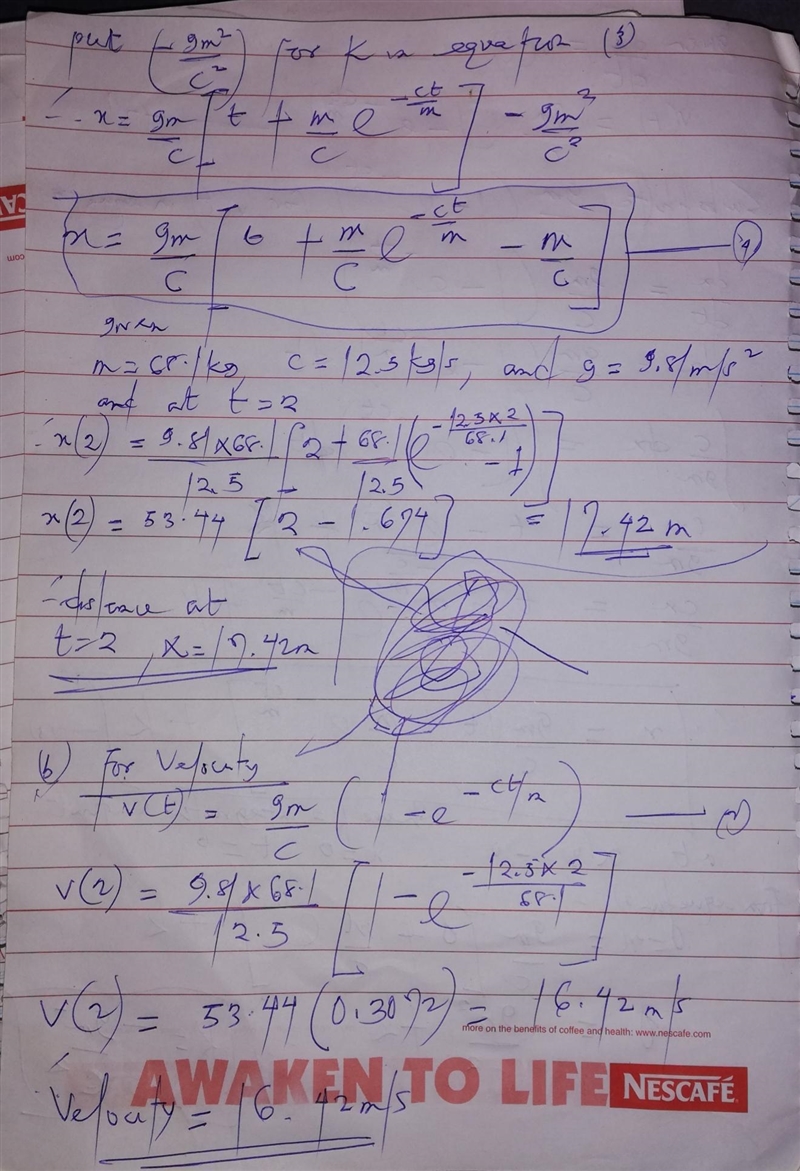 put (-gm²/c²) for K in equation (3)
∴ x = gm/c [ t + m/c e^(-ct/m) ] - gm²/c²
x = gm/c [ t + m/c e^(-ct/m) - m/c ] —— (4)
given
m = 68.1kg, c = 12.5kg/s, and g = 9.81m/s²
and at t = 2
∴ x(2) = 9.81×68.1/12.5 [ 2 + 68.1/12.5 ( e^(-12.5×2/68.1) - 1 ) ]
x(2) = 53.44 [ 2 - 1.674 ] = 17.42m
∴ distance at
t = 2, x = 17.42m
(b) For Velocity
v(t) = gm/c ( 1 - e^(-ct/m) ) ——
v(2) = 9.81×68.1/12.5 [ 1 - e^(-12.5×2/68.1) ]
v(2) = 53.44 (0.3072) = 16.42m/s
more on the benefits of coffee and health: www.nescafe.com
AWAKEN TO LIFE NESCAFÉ
Velocity = 16.42m/s